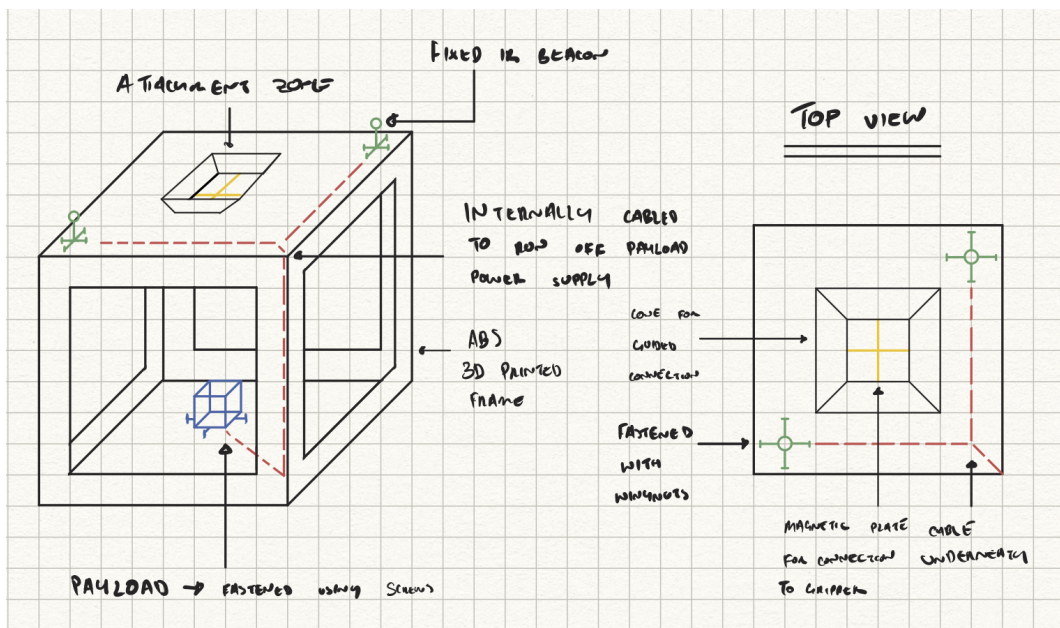 FIXED IR BEACON
ATTACHMENT ZONE
TOP VIEW
INTERNALLY CABLED
TO RUN OFF PAYLOAD
POWER SUPPLY
CONE FOR
GUIDED
CONNECTION
ABS
3D PRINTED
FRAME
FASTENED
WITH
WINGNUTS
MAGNETIC PLATE
FOR CONNECTION
TO GRIPPER
CABLE
UNDERNEATH
PAYLOAD → FASTENED USING SCREWS